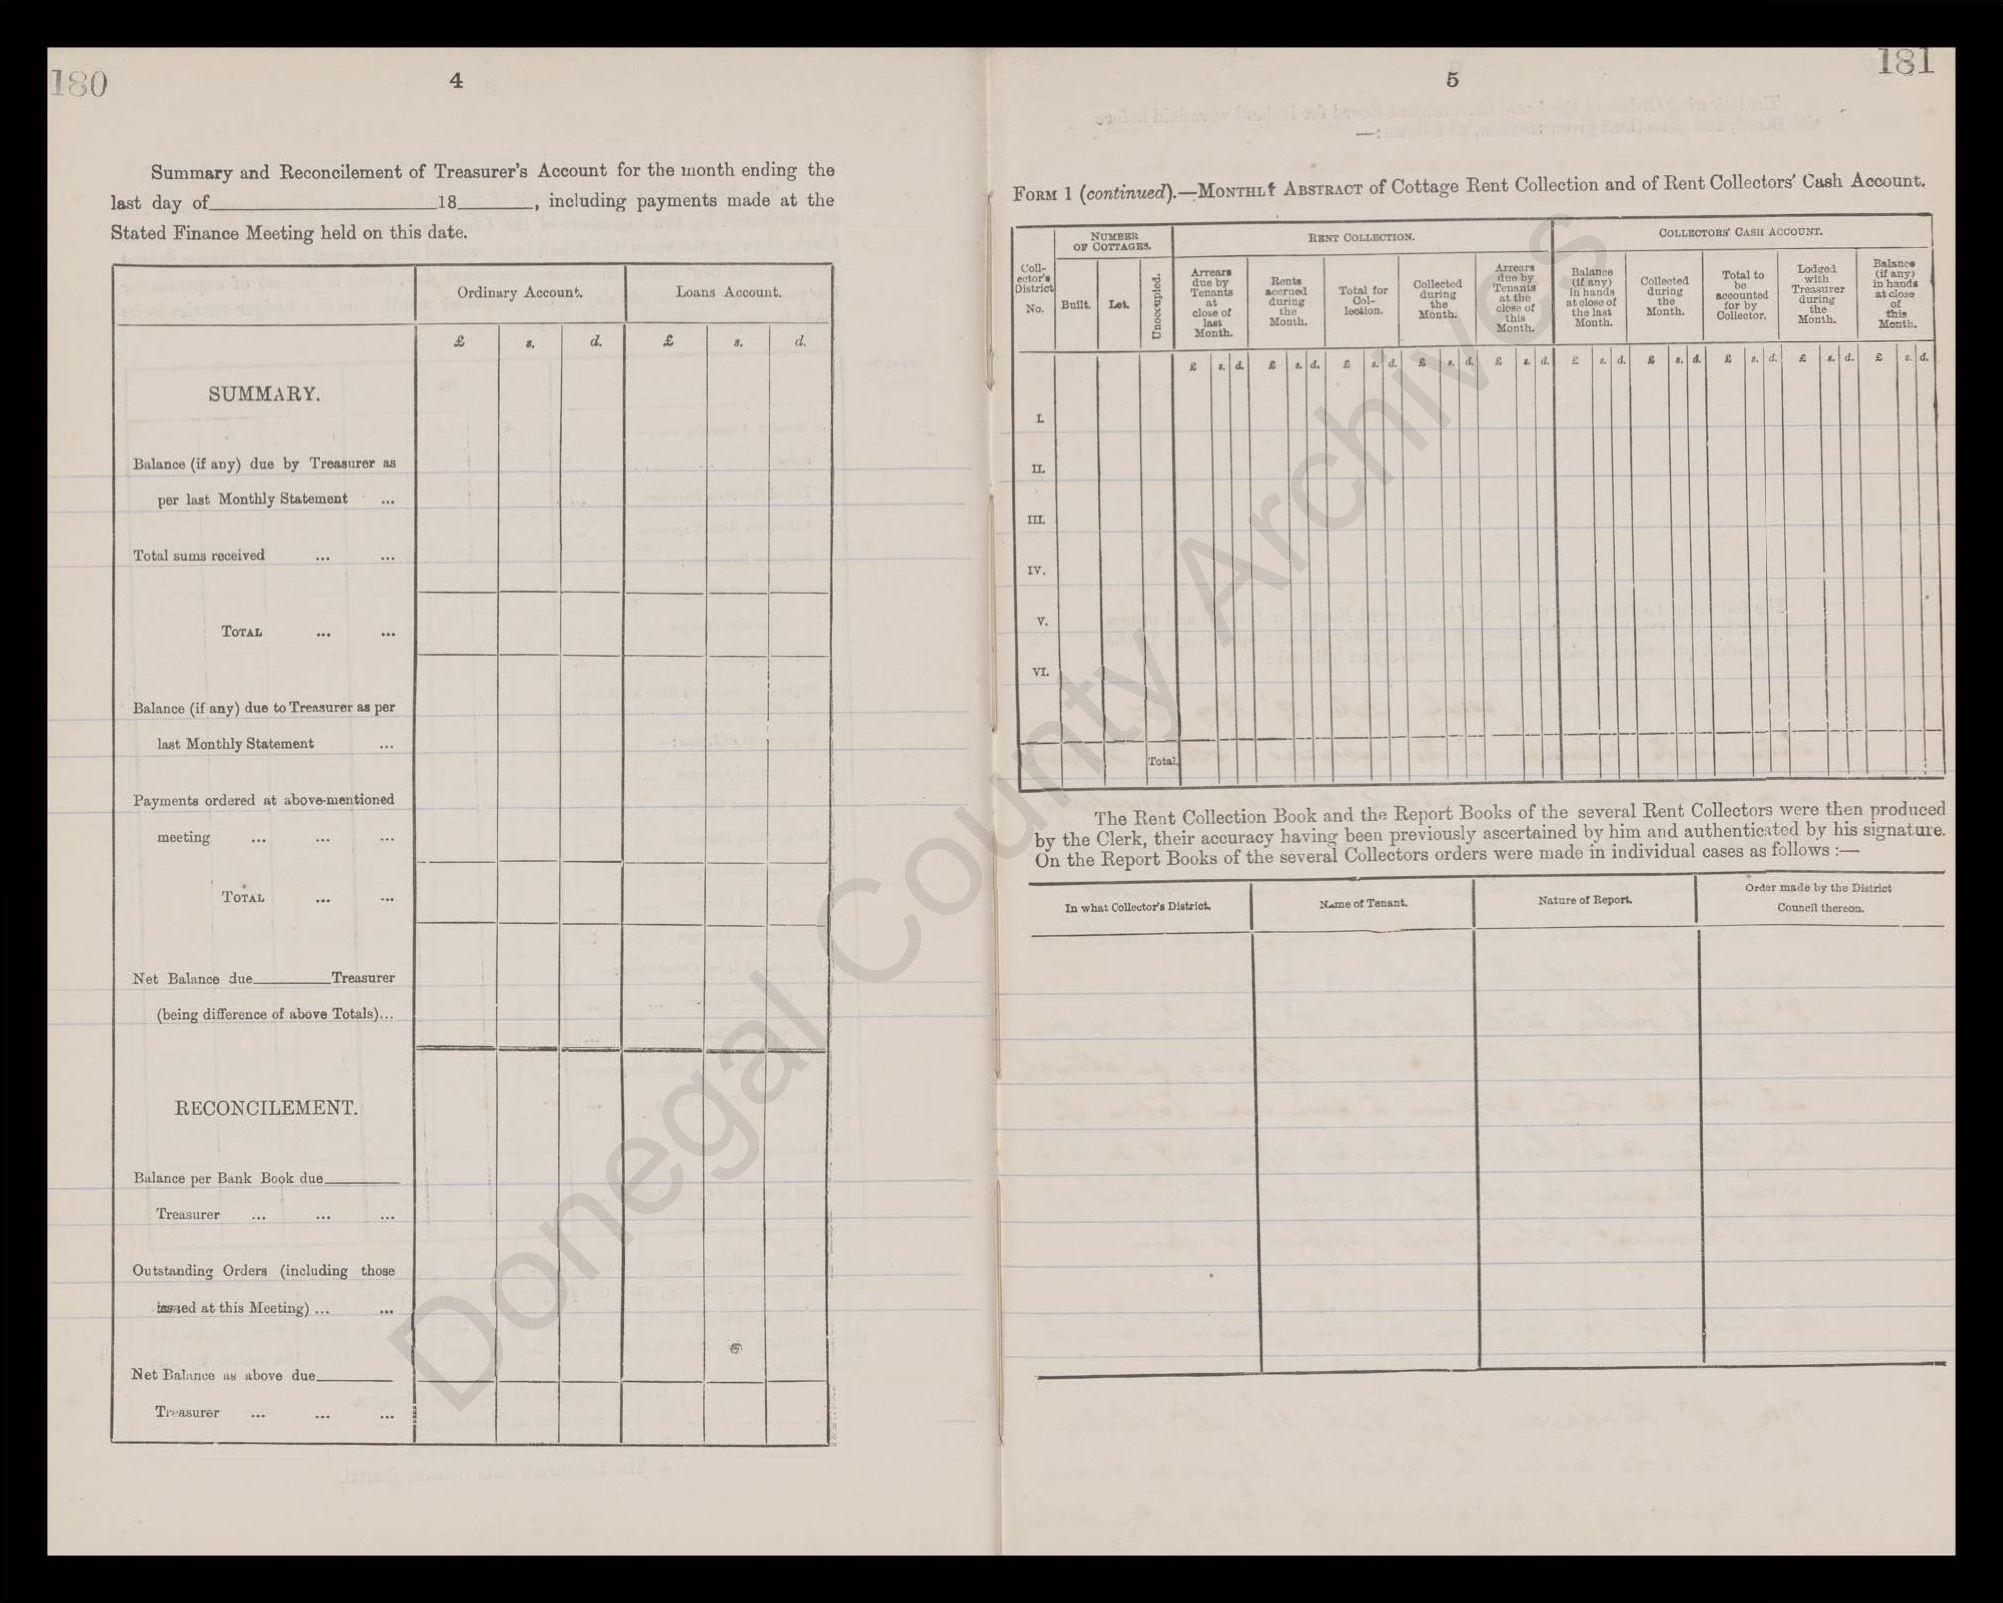 180
4
Summary and Reconcilement of Treasurer's Account for the month ending the
last day of 18 , including payments made at the
Stated Finance Meeting held on this date.
Ordinary Account. Loans Account.
£ s. d. £ s. d.
SUMMARY.
Balance (if any) due by Treasurer as
per last Monthly Statement ...
Total sums received ... ...
TOTAL ... ...
Balance (if any) due to Treasurer as per
last Monthly Statement ...
Payments ordered at above-mentioned
meeting ... ... ...
TOTAL ... ...
Net Balance due Treasurer
(being difference of above Totals)...
RECONCILEMENT.
Balance per Bank Book due
Treasurer ... ... ...
Outstanding Orders (including those
issued at this Meeting) ... ...
Net Balance as above due
Treasurer ... ... ...
181
5
FORM 1 (continued).—MONTHLY ABSTRACT of Cottage Rent Collection and of Rent Collectors' Cash Account.
Collector's District No.
NUMBER OF COTTAGES.
Built. Let. Unoccupied.
RENT COLLECTION.
Arrears due by Tenants at close of last Month.
Rents accrued during the Month.
Total for Collection.
Collected during the Month.
Arrears due by Tenants at the close of this Month.
COLLECTORS' CASH ACCOUNT.
Balance (if any) in hands at close of the last Month.
Collected during the Month.
Total to be accounted for by Collector.
Lodged with Treasurer during the Month.
Balance (if any) in hands at close of this Month.
£ s. d. £ s. d. £ s. d. £ s. d. £ s. d. £ s. d. £ s. d. £ s. d. £ s. d. £ s. d.
I.
II.
III.
IV.
V.
VI.
Total.
The Rent Collection Book and the Report Books of the several Rent Collectors were then produced
by the Clerk, their accuracy having been previously ascertained by him and authenticated by his signature.
On the Report Books of the several Collectors orders were made in individual cases as follows :—
In what Collector's District. Name of Tenant. Nature of Report. Order made by the District
Council thereon.
Donegal County Archives